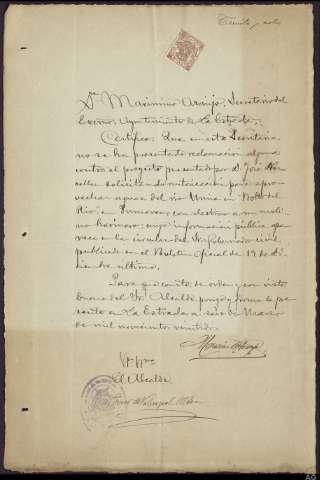 Treinta y ocho
Dn Maximino Araujo, Secretario del
Excmo. Ayuntamiento de La Estrada.
Certifico: Que en esta Secretaría
no se ha presentado reclamación alguna
contra el proyecto presentado por D. José
solicitando autorización para apro-
vechar aguas del río Umia en
Río, en con destino a un moli-
no harinero, cuya información pública apa-
rece en la circular del Sr. Gobernador civil,
publicada en el Boletín Oficial de 19 de Di-
ciembre último.
Para que conste de orden y con visto
bueno del Sr. Alcalde pongo y firmo la pre-
sente en La Estrada a seis de Marzo
de mil novecientos veintidós.
Maximino Araujo
Vº Bno
El Alcalde
AG